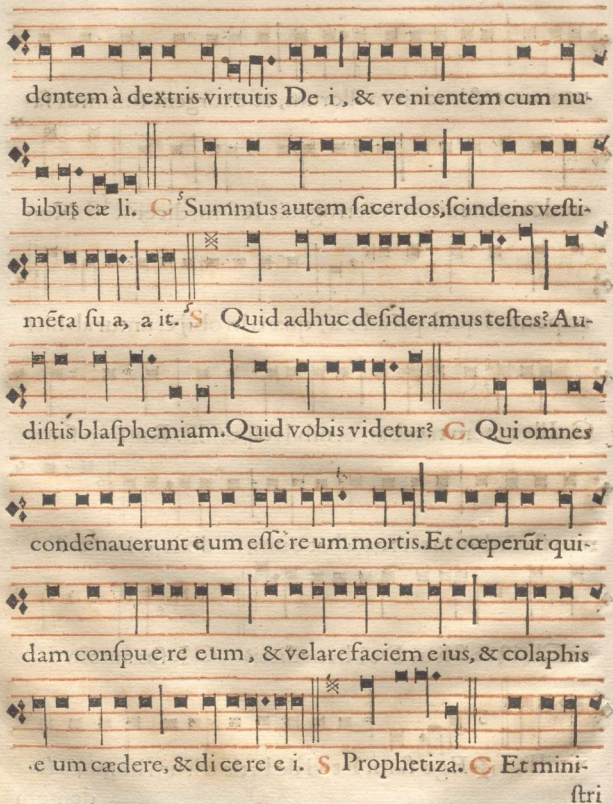 dentem à dextris virtutis De i, & ve ni entem cum nu-
bibus cæ li. C Summus autem ſacerdos, ſcindens veſti-
mēta ſu a, a it. S Quid adhuc deſideramus teſtes? Au-
diſtis blaſphemiam. Quid vobis videtur? C Qui omnes
condēnauerunt e um eſſe re um mortis. Et cœperūt qui-
dam conſpu e re e um, & velare faciem e ius, & colaphis
e um cædere, & di ce re e i. S Prophetiza. C Et mini-
ſtri